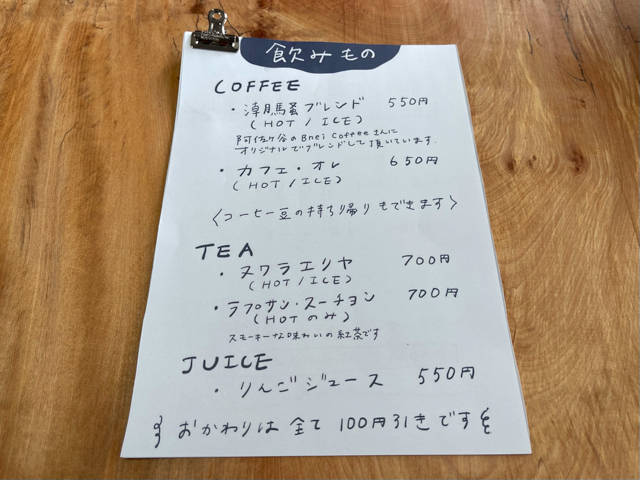 飲みもの
COFFEE
・ 騒ブレンド 550円
(HOT / ICE)
阿佐ヶ谷のBnei Coffeeさんに
オリジナルでブレンドして頂いています.
・カフェ・オレ 650円
(HOT / ICE)
〈コーヒー豆の持ち帰りもできます〉
TEA
・ヌワラエリヤ 700円
(HOT / ICE)
・ラプサン・スーチョン 700円
(HOTのみ)
スモーキーな味わいの紅茶です
JUICE
・りんごジュース 550円
おかわりは全て100円引きです